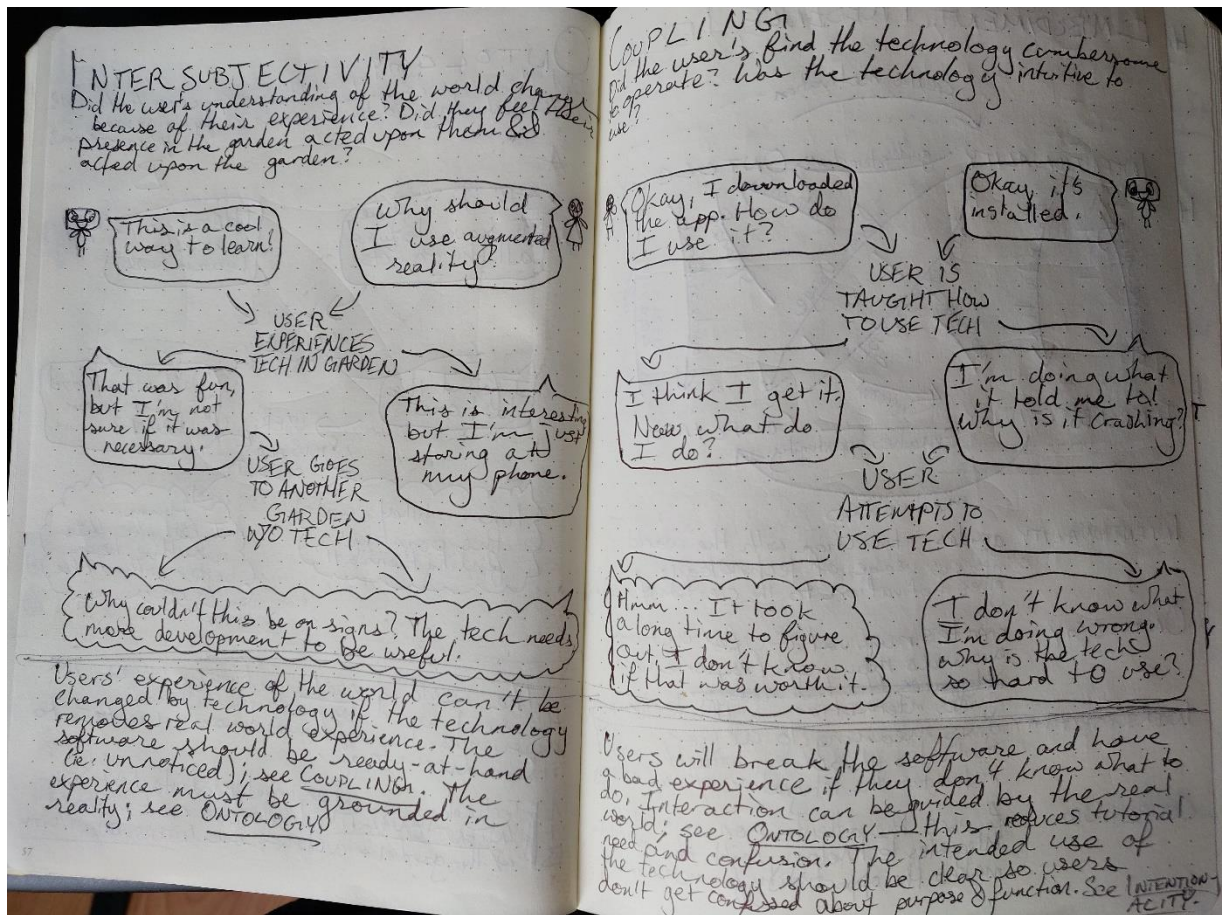 INTERSUBJECTIVITY
Did the user's understanding of the world change
because of their experience? Did they feel their
presence in the garden acted upon them &
acted upon the garden?
This is a cool
way to learn!
Why should
I use augmented
reality?
USER
EXPERIENCES
TECH IN GARDEN
That was fun,
but I'm not
sure if it was
necessary.
This is interesting
but I'm just
staring at
my phone.
USER GOES
TO ANOTHER
GARDEN
W/O TECH
Why couldn't this be on signs? The tech needs
more development to be useful.
Users' experience of the world can't be
changed by technology if the technology
removes real world experience. The
software should be ready-at-hand
(ie. unnoticed); see COUPLING. The
experience must be grounded in
reality; see ONTOLOGY
57
COUPLING
Did the user's find the technology cumbersome
to operate? Was the technology intuitive to
use?
Okay, I downloaded
the app. How do
I use it?
Okay, it's
installed.
USER IS
TAUGHT HOW
TO USE TECH
I think I get it.
Now what do
I do?
I'm doing what
it told me to!
Why is it crashing?
USER
ATTEMPTS TO
USE TECH
Hmm... It took
a long time to figure
out. I don't know
if that was worth it.
I don't know what
I'm doing wrong.
Why is the tech
so hard to use?
Users will break the software and have
a bad experience if they don't know what to
do. Interaction can be guided by the real
world; see ONTOLOGY—this reduces tutorial
need and confusion. The intended use of
the technology should be clear so users
don't get confused about purpose & function. See INTENTION-
ALITY.